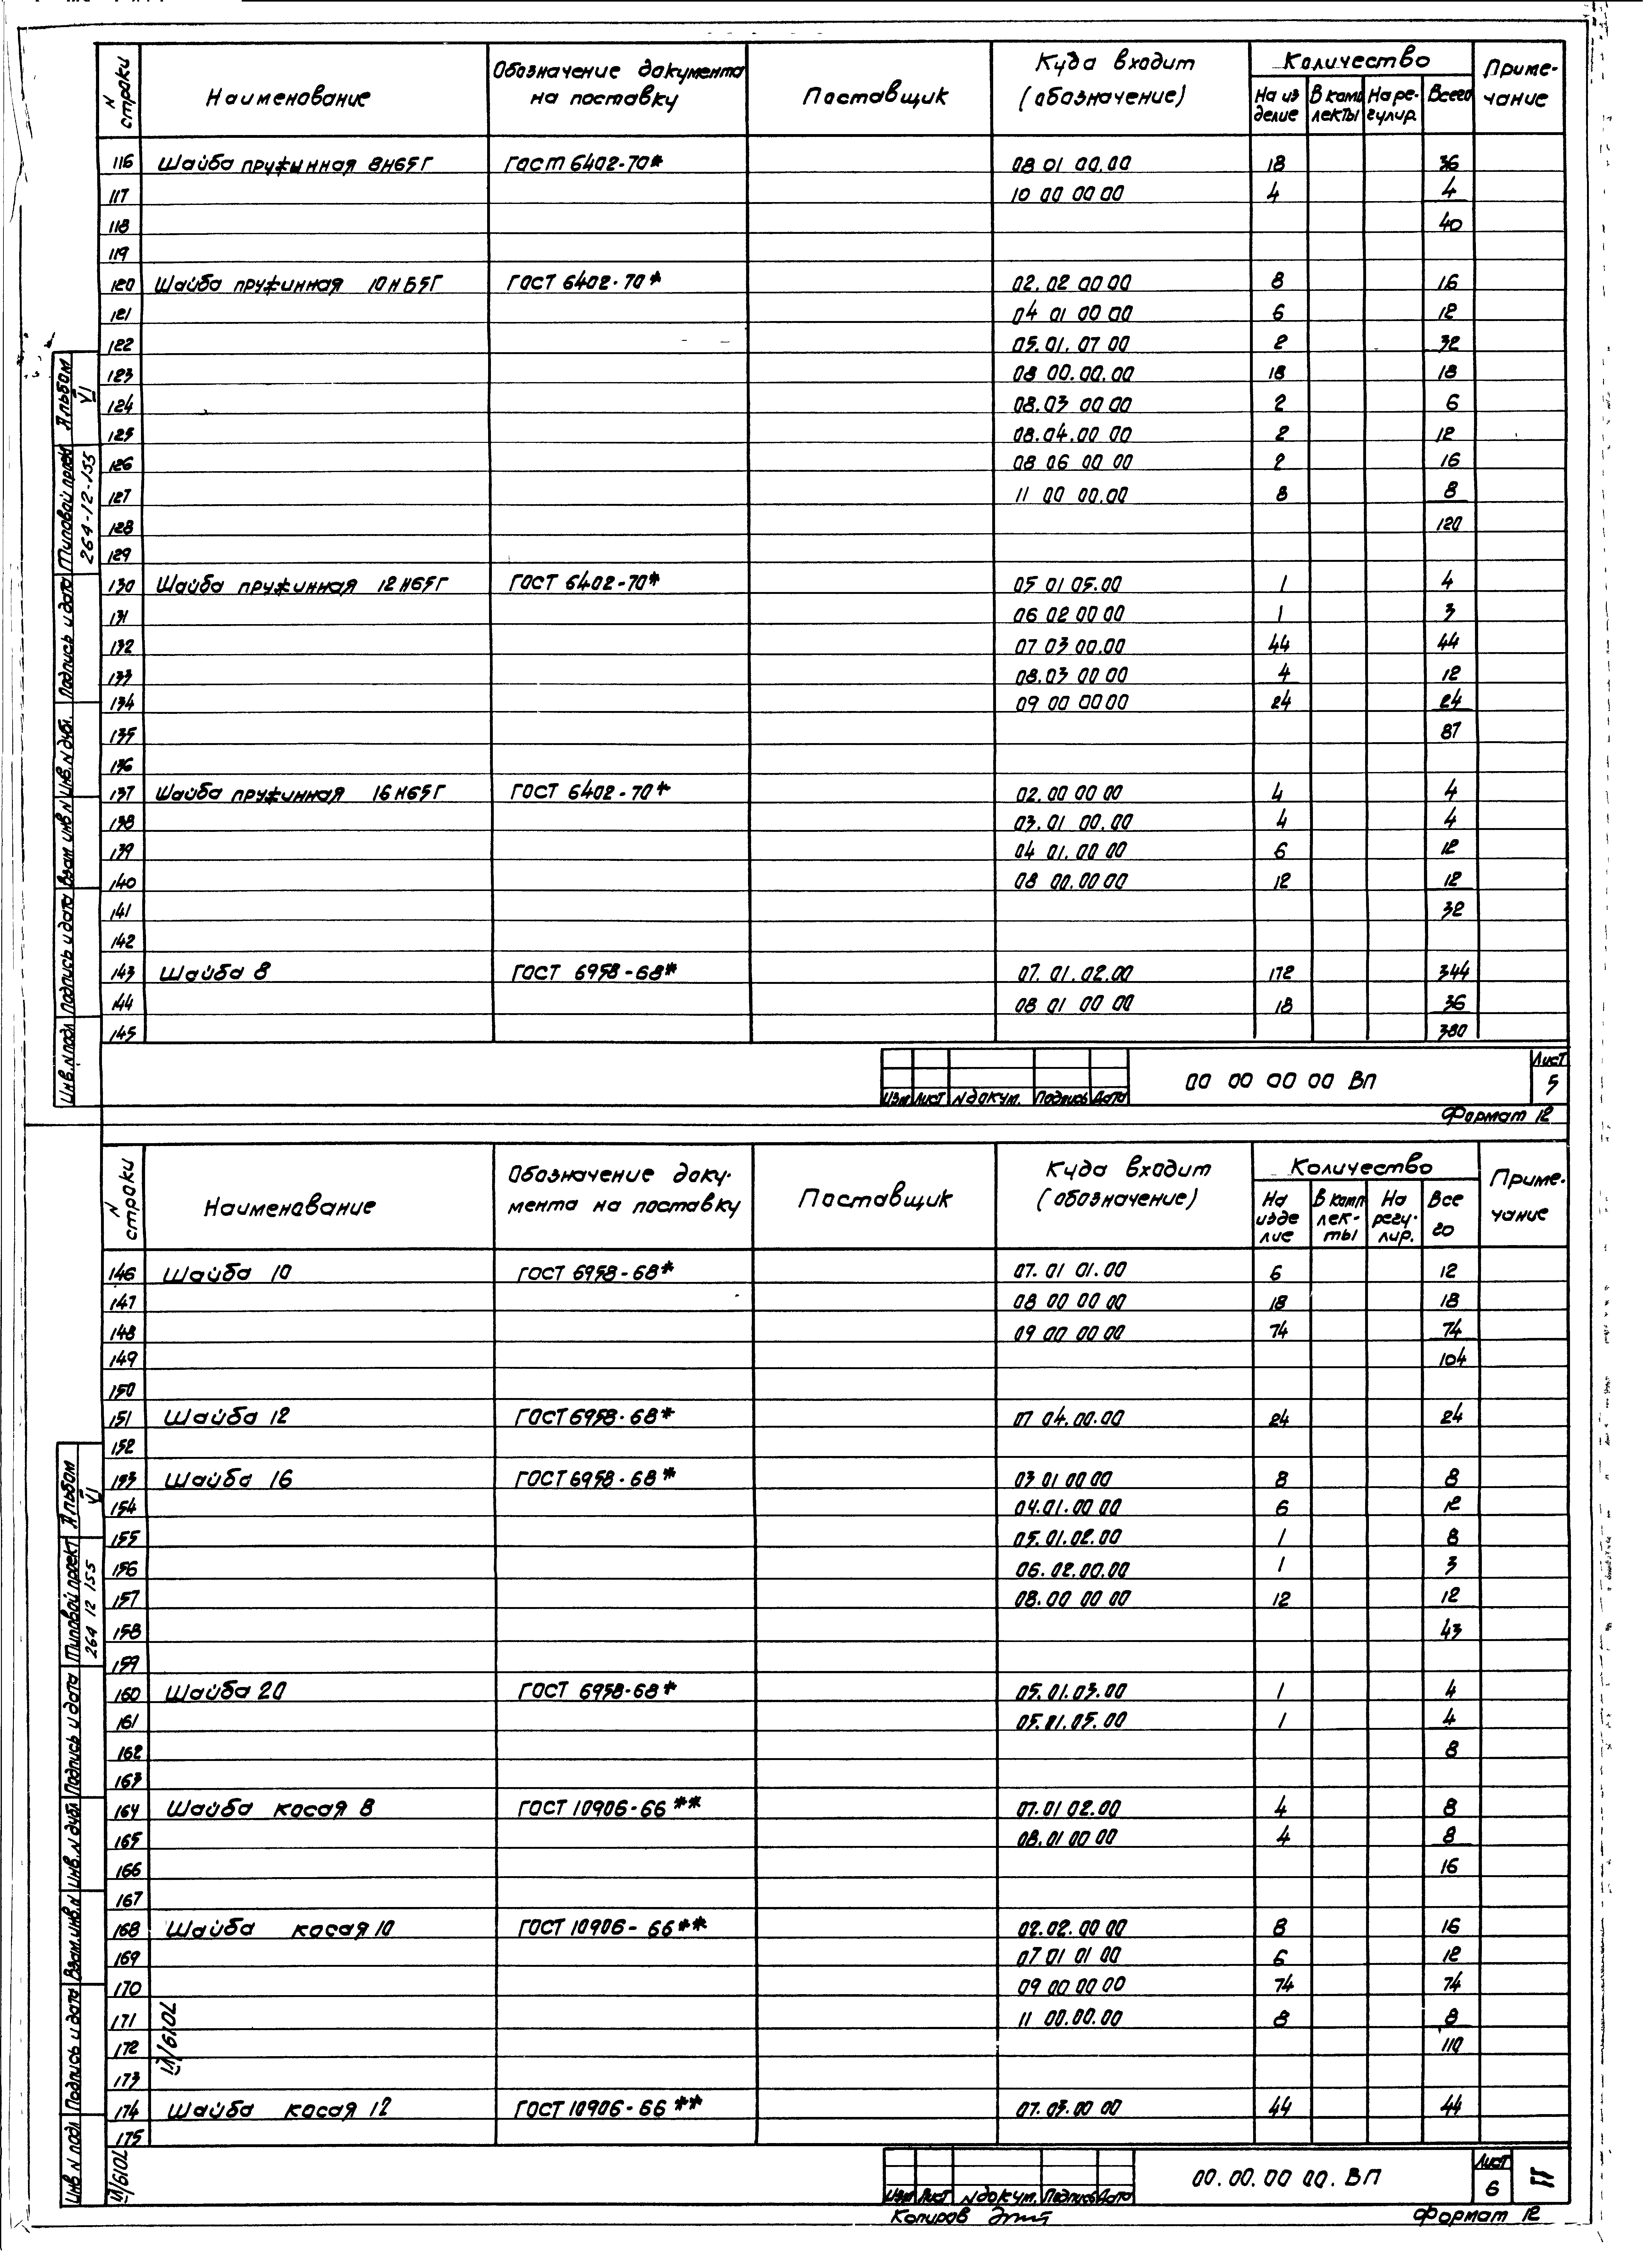 N строки Наименование Обозначение документа на поставку Поставщик Куда входит (обозначение) Количество На изделие В комплекты На регулир. Всего Примечание
116 Шайба пружинная 8Н65Г ГОСТ 6402-70* 08 01 00.00 18 36
117 10 00 00 00 4 4
118 40
119
120 Шайба пружинная 10Н65Г ГОСТ 6402-70* 02.02 00 00 8 16
121 04 01 00 00 6 12
122 05.01.07 00 2 32
123 08 00.00.00 18 18
124 08.03 00 00 2 6
125 08.04.00 00 2 12
126 08 06 00 00 2 16
127 11 00 00.00 8 8
128 120
129
130 Шайба пружинная 12Н65Г ГОСТ 6402-70* 05 01 05.00 1 4
131 06 02 00 00 1 3
132 07 03 00.00 44 44
133 08.03 00 00 4 12
134 09 00 00 00 24 24
135 87
136
137 Шайба пружинная 16Н65Г ГОСТ 6402-70* 02.00 00 00 4 4
138 03.01 00.00 4 4
139 04 01.00 00 6 12
140 08 00.00 00 12 12
141 32
142
143 Шайба 8 ГОСТ 6958-68* 07.01.02.00 172 344
144 08 01 00 00 18 36
145 380
Альбом VI
Типовой проект 264-12-155
Подпись и дата
Инв. N дубл.
Взам инв N
Подпись и дата
Инв. N подл
Изм Лист N докум. Подпись Дата
00 00 00 00 ВП
Лист 5
Формат 12
N строки Наименование Обозначение документа на поставку Поставщик Куда входит (обозначение) Количество На изделие В комплекты На регулир. Всего Примечание
146 Шайба 10 ГОСТ 6958-68* 07.01 01.00 6 12
147 08 00 00 00 18 18
148 09 00 00 00 74 74
149 104
150
151 Шайба 12 ГОСТ 6958-68* 07 04.00.00 24 24
152
153 Шайба 16 ГОСТ 6958-68* 03 01 00 00 8 8
154 04.01.00 00 6 12
155 05.01.02.00 1 8
156 06.02.00.00 1 3
157 08.00 00 00 12 12
158 43
159
160 Шайба 20 ГОСТ 6958-68* 05.01.03.00 1 4
161 05.01.05.00 1 4
162 8
163
164 Шайба косая 8 ГОСТ 10906-66** 07.01 02.00 4 8
165 08.01 00 00 4 8
166 16
167
168 Шайба косая 10 ГОСТ 10906-66** 02.02.00 00 8 16
169 07 01 01 00 6 12
170 09 00 00 00 74 74
171 11 00.00.00 8 8
172 110
173
174 Шайба косая 12 ГОСТ 10906-66** 07.03.00 00 44 44
175
Альбом VI
Типовой проект 264 12 155
Подпись и дата
Инв. N дубл
Взам. инв. N
Подпись и дата
Инв N подл
7019/VI
7019/VI
Изм Лист N докум. Подпись Дата
00.00.00 00.ВП
Лист 6
Копиров
Формат 12